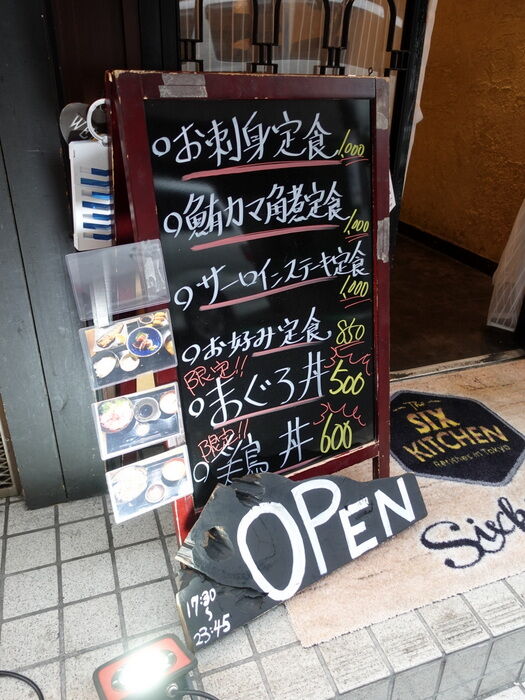 お刺身定食 1,000
鮪カマ角煮定食 1,000
サーロインステーキ定食 1,000
お好み定食 850
限定!!
まぐろ丼 500
限定!!
丼 600
OPEN
17:30
~
23:45
The
SIX
KITCHEN
in Tokyo